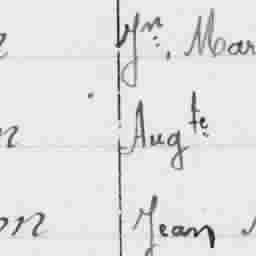 Jn. Mar
n Aug te
on Jean